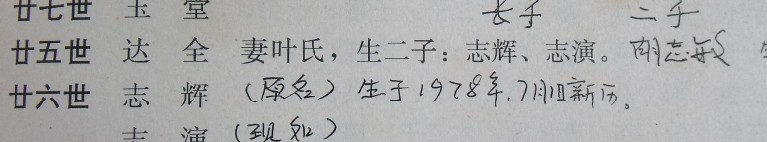 廿七世 玉 堂 长子 二子
廿五世 达 全 妻叶氏，生二子：志辉、志演。 胡志毅
廿六世 志 辉 （原名） 生于1978年.7月1日新历。
志 演 （现名）